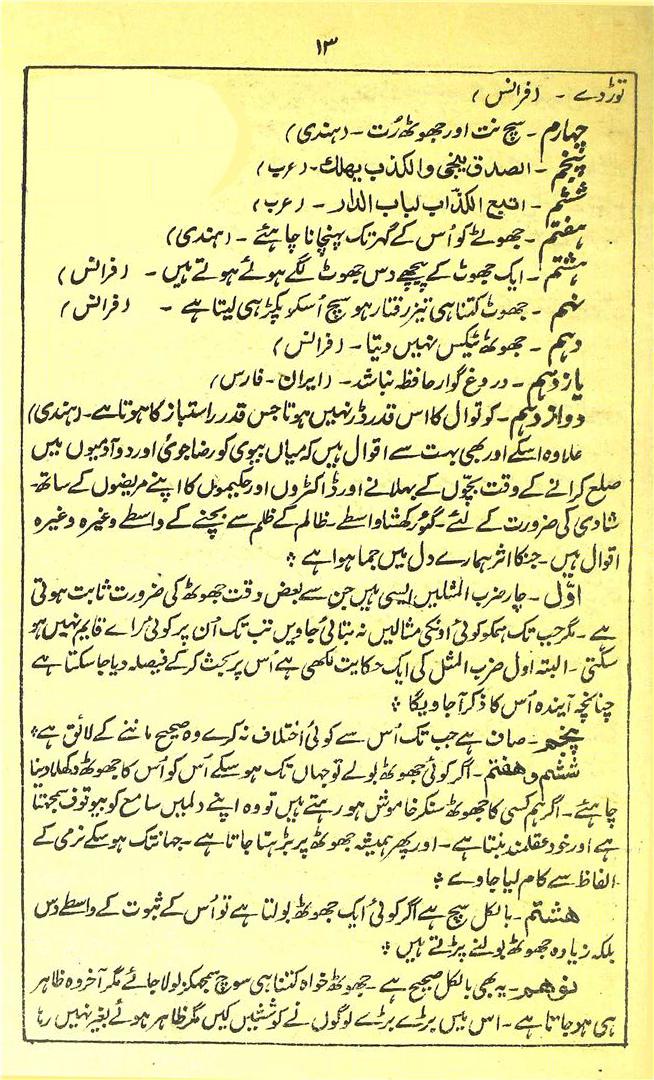 ۱۳
توڑدے ۔ (فرانس)
چہارم ۔ سچ نت اور جھوٹھ رُت ۔ (ہندی)
پنجم ۔ الصدق ینجی والکذب یھلك ۔ (عرب)
ششم ۔ اتبع الکذّاب لباب الدار ۔ (عرب)
ہفتم ۔ جھوٹے کو اُس کے گھر تک پہنچانا چاہئے ۔ (ہندی)
ہشتم ۔ ایک جھوٹ کے پیچھے دس جھوٹ لگے ہوئے ہوتے ہیں ۔ (فرانس)
نہم ۔ جھوٹ کتنا ہی تیز رفتار ہو سچ اُسکو پکڑ ہی لیتا ہے ۔ (فرانس)
دہم ۔ جھوٹھ ٹیکس نہیں دیتا ۔ (فرانس)
یازدہم ۔ دروغ گوار حافظہ نباشد ۔ (ایران ۔ فارس)
دوازدہم ۔ کوتوال کا اس قدر ڈر نہیں ہوتا جس قدر راستباز کا ہوتا ہے ۔ (ہندی)
علاوہ اسکے اور بھی بہت سے اقوال ہیں کہ میاں بیوی کو رضا جوئی اور دو آدمیوں میں
صلح کرانے کے وقت بچّوں کے بہلانے اور ڈاکٹروں اور حکیموں کا اپنے مریضوں کے ساتھ ۔
شادی کی ضرورت کے لئے ۔ گئورکھشا واسطے ۔ ظالم کے ظلم سے بچنے کے واسطے وغیرہ وغیرہ
اقوال ہیں ۔ جنکا اثر ہمارے دل میں جما ہوا ہے ؞
اوّل ۔ چار ضرب المثلیں ایسی ہیں جن سے بعض وقت جھوٹھ کی ضرورت ثابت ہوتی
ہے ۔ مگر جب تک ہمکو کوئی اونکی مثالیں نہ بتائی جاویں تب تک اُن پر کوئی راے قایم نہیں ہو
سکتی ۔ البتہ اول ضرب المثل کی ایک حکایت لکھی ہے اُس پر بحث کرکے فیصلہ دیا جا سکتا ہے
چنانچہ آیندہ اُس کا ذکر آجاویگا ؞
پنجم ۔ صاف ہے جب تک اُس سے کوئی اختلاف نہ کرے وہ صحیح ماننے کے لائق ہے ؞
ششم و ھفتم ۔ اگر کوئی جھوٹھ بولے تو جہاں تک ہو سکے اُس کو اُس کا جھوٹھ دکھلا دینا
چاہئے ۔ اگر ہم کسی کا جھوٹھ سنکر خاموش ہو رہتے ہیں تو وہ اپنے دلمیں سامع کو بیوقوف سمجھتا
ہے اور خود عقلمند بنتا ہے ۔ اور پھر ہمیشہ جھوٹھ پر بڑہتا جاتا ہے ۔ جہانتک ہو سکے نرمی کے
الفاظ سے کام لیا جاوے ؞
ھشتم ۔ بالکل سچ ہے اگر کوئی ایک جھوٹھ بولتا ہے تو اُس کے ثبوت کے واسطے دس
بلکہ زیادہ جھوٹھ بولنے پڑتے ہیں ؞
نوھم ۔ یہ بھی بالکل صحیح ہے ۔ جھوٹھ خواہ کتنا ہی سوچ سمجھکر بولا جائے مگر آخر وہ ظاہر
ہی ہو جاتا ہے ۔ اس میں بڑے بڑے لوگوں نے کوششیں کیں مگر ظاہر ہوئے بغیر نہیں رہا